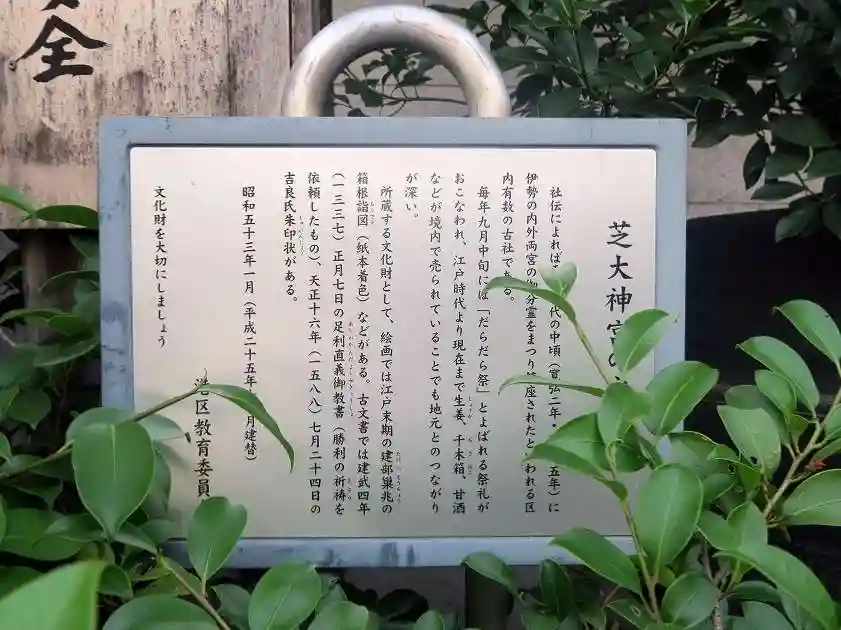 全
芝大神宮の
社伝によれば 代の中頃（寛弘二年・ 五年）に
伊勢の内外両宮の御分霊をまつり 座されたと われる区
内有数の古社である。
毎年九月中旬には「だらだら祭」とよばれる祭礼が
おこなわれ、江戸時代より現在まで生姜、千木箱、甘酒
などが境内で売られていることでも地元とのつながり
が深い。
所蔵する文化財として、絵画では江戸末期の建部巣兆の
箱根詣図（紙本着色）などがある。古文書では建武四年
（一三三七）正月七日の足利直義御教書（勝利の祈祷を
依頼したもの）、天正十六年（一五八八）七月二十四日の
吉良氏朱印状がある。
昭和五十三年一月（平成二十五年 月建替）
港区教育委員
文化財を大切にしましょう